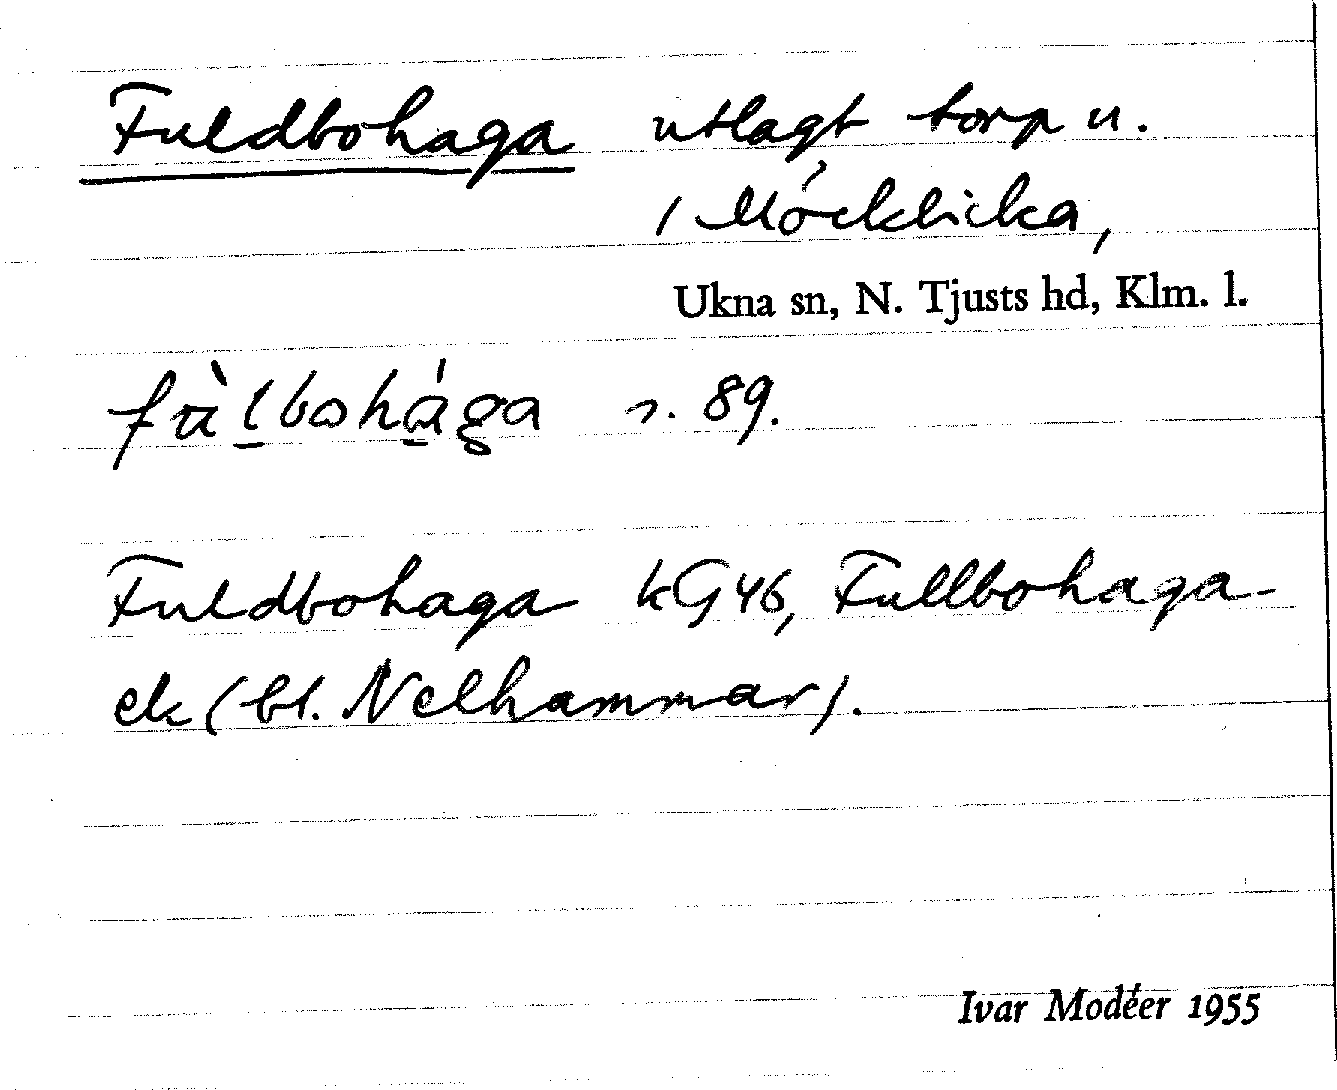 Fuldbohaga utlagt torp u.
/ Möcklicka,
Ukna sn, N. Tjusts hd, Klm. l.
fu̇̀lbohága s. 89.
Fuldbohaga kG46, Fullbohaga
ek (bl. Nelhammar).
Ivar Modéer 1955